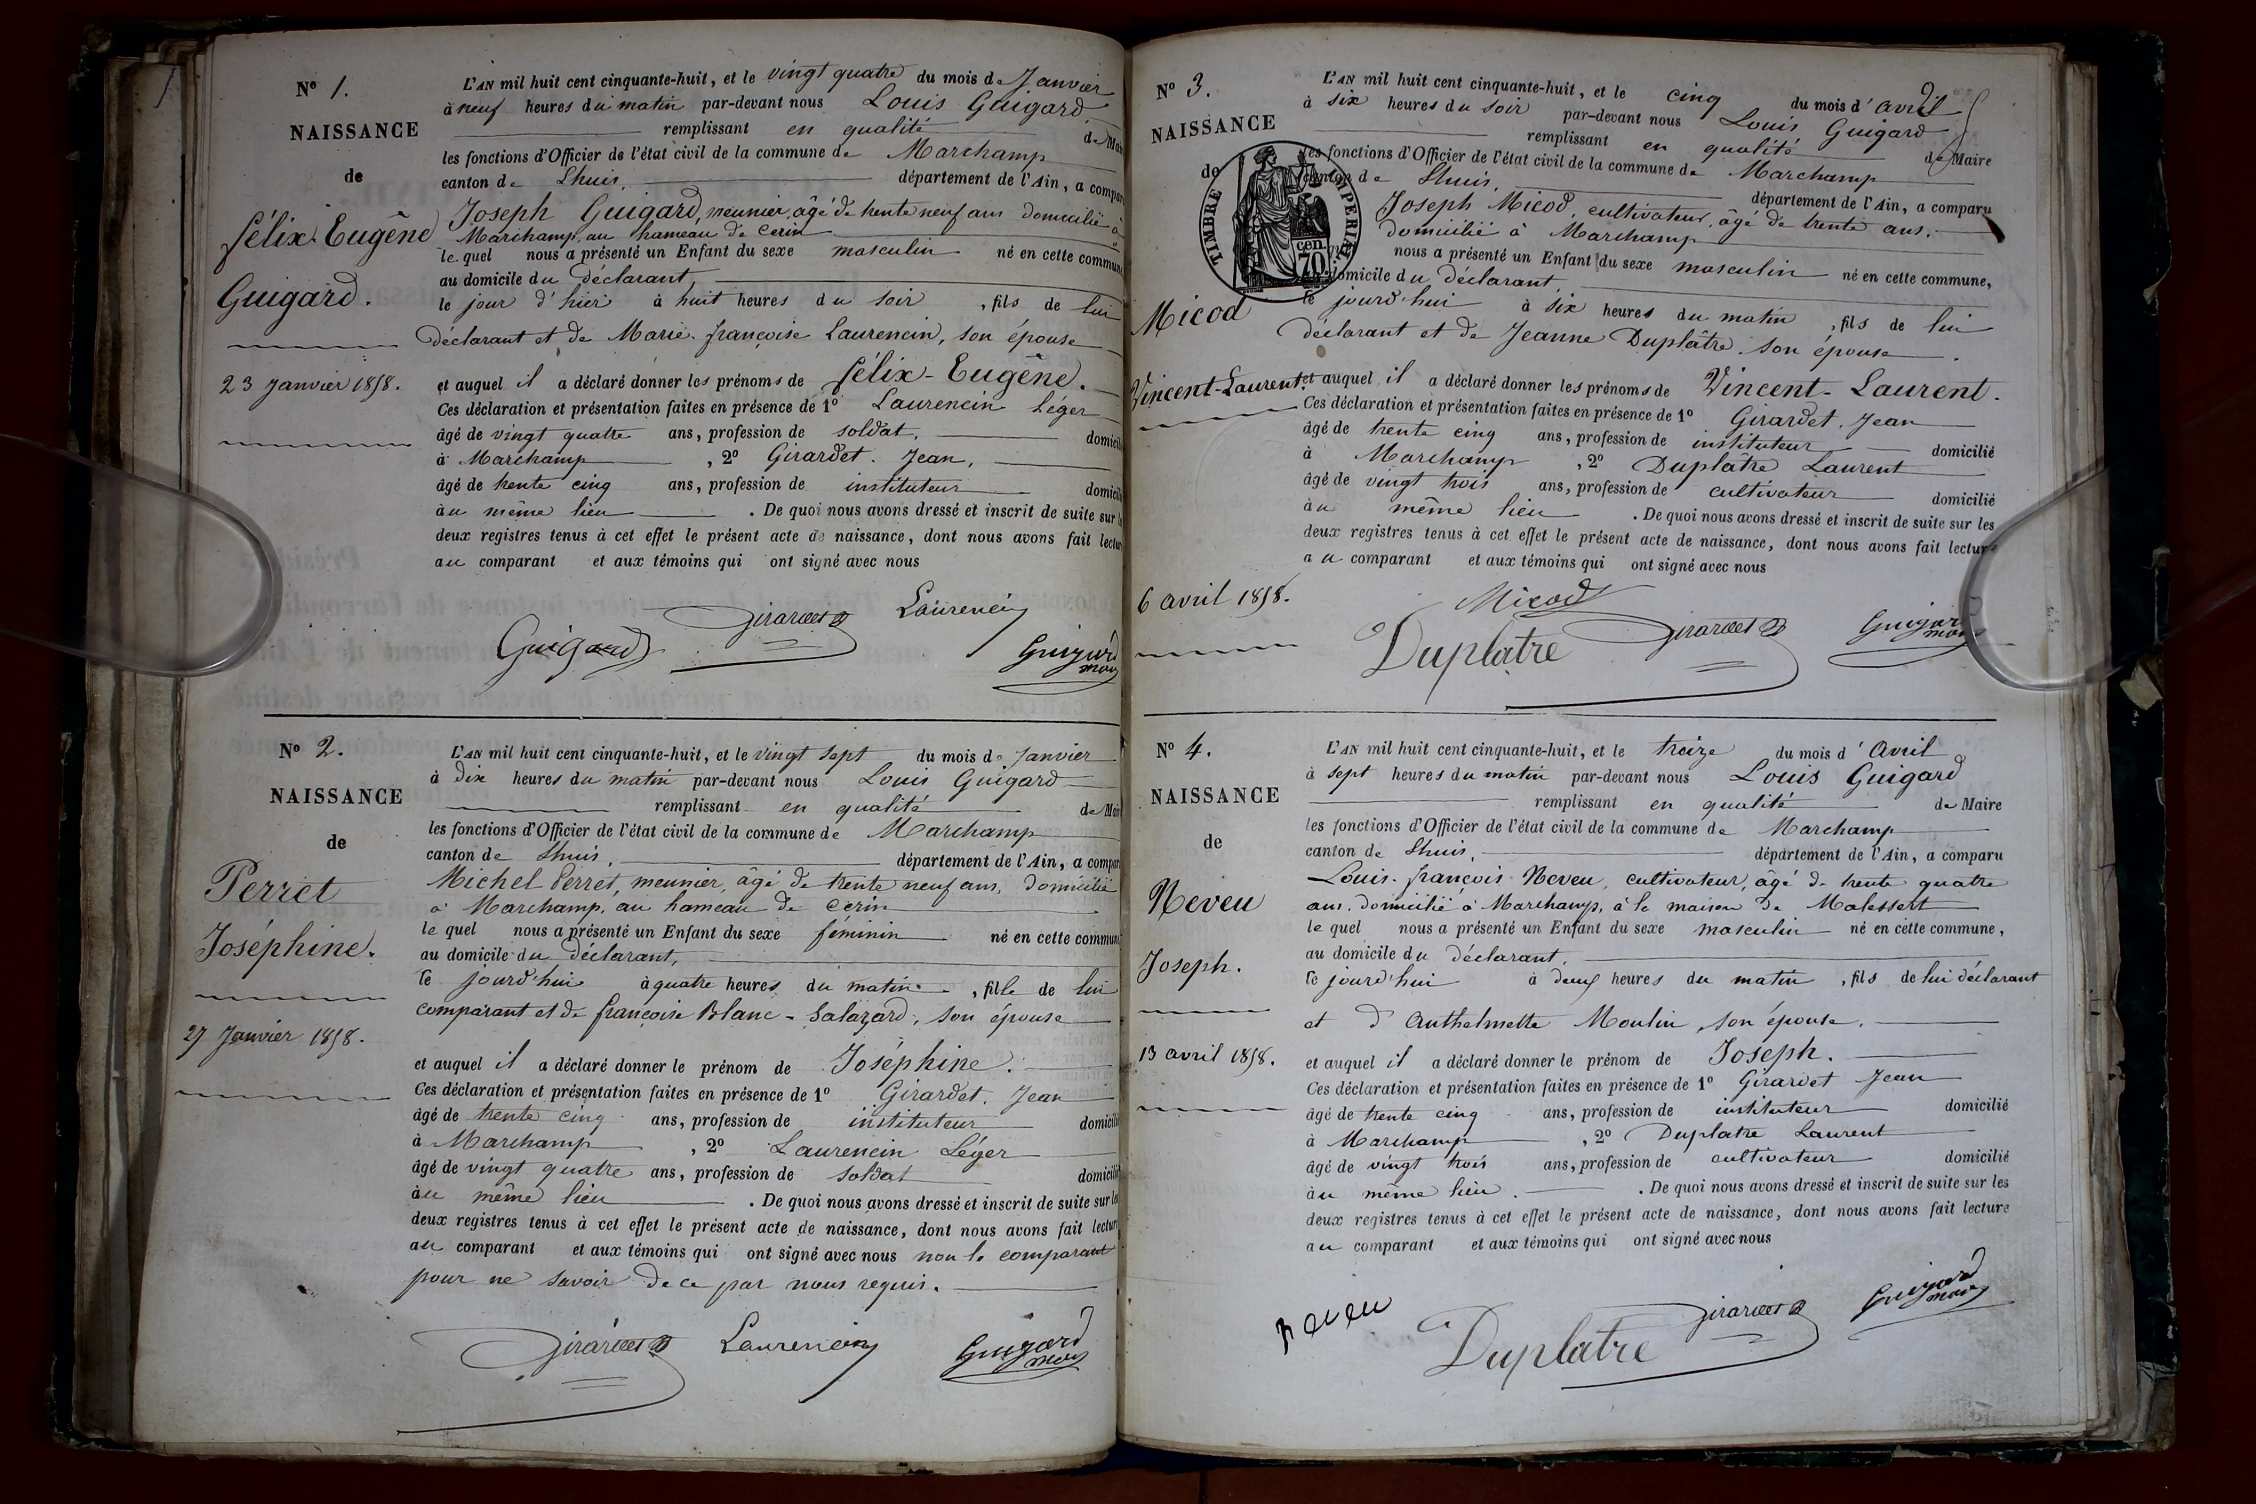 1
Nº 1.
NAISSANCE
de
Félix-Eugène
Guigard.
23 Janvier 1858.
L'AN mil huit cent cinquante-huit, et le vingt quatre du mois de Janvier
à neuf heures du matin par-devant nous Louis Guigard
remplissant en qualité de Mai
les fonctions d'Officier de l'état civil de la commune de Marchamp
canton de Lhuis. département de l'Ain, a compar
Joseph Guigard, meunier, âgé de trente neuf ans domicilié à
Marchamp, au hameau de Cerin
le quel nous a présenté un Enfant du sexe masculin né en cette commune
au domicile du déclarant,
le jour d'hier à huit heures du soir, fils de lui
déclarant et de Marie-françoise Laurencin, son épouse
et auquel il a déclaré donner les prénoms de Félix-Eugène.
Ces déclaration et présentation faites en présence de 1º Laurencin Léger
âgé de vingt quatre ans, profession de soldat, domicili
à Marchamp, 2º Girardet Jean,
âgé de trente cinq ans, profession de instituteur domicili
au même lieu. De quoi nous avons dressé et inscrit de suite sur le
deux registres tenus à cet effet le présent acte de naissance, dont nous avons fait lectur
au comparant et aux témoins qui ont signé avec nous
Guigard Girardet Laurencin Guigard
maire
Nº 2.
NAISSANCE
de
Perret
Joséphine.
27 Janvier 1858.
L'AN mil huit cent cinquante-huit, et le vingt sept du mois de Janvier
à dix heures du matin par-devant nous Louis Guigard
remplissant en qualité de Mai
les fonctions d'Officier de l'état civil de la commune de Marchamp
canton de Lhuis. département de l'Ain, a compar
Michel Perret, meunier, âgé de trente neuf ans, domicilié
à Marchamp, au hameau de Cerin
le quel nous a présenté un Enfant du sexe féminin né en cette commune
au domicile du déclarant,
le jourd'hui à quatre heures du matin, fille de lui
comparant et de françoise Blanc-Salazard, son épouse
et auquel il a déclaré donner le prénom de Joséphine.
Ces déclaration et présentation faites en présence de 1º Girardet. Jean
âgé de trente cinq ans, profession de instituteur domicili
à Marchamp, 2º Laurencin Léger
âgé de vingt quatre ans, profession de soldat domicili
au même lieu. De quoi nous avons dressé et inscrit de suite sur les
deux registres tenus à cet effet le présent acte de naissance, dont nous avons fait lectur
au comparant et aux témoins qui ont signé avec nous non le comparant
pour ne savoir de ce par nous requis.
Girardet Laurencin Guigard
maire
Nº 3.
NAISSANCE
de
TIMBRE IMPERIAL
cen.
70
Micod
Vincent-Laurent.
6 avril 1858.
L'AN mil huit cent cinquante-huit, et le cinq du mois d'avril
à six heures du soir par-devant nous Louis Guigard
remplissant en qualité de Maire
les fonctions d'Officier de l'état civil de la commune de Marchamp
canton de Lhuis. département de l'Ain, a comparu
Joseph Micod, cultivateur, âgé de trente ans.
domicilié à Marchamp
nous a présenté un Enfant du sexe masculin né en cette commune,
domicile du déclarant
le jourd'hui à six heures du matin, fils de lui
déclarant et de Jeanne Duplâtre son épouse.
et auquel il a déclaré donner les prénoms de Vincent-Laurent.
Ces déclaration et présentation faites en présence de 1º Girardet. Jean
âgé de trente cinq ans, profession de instituteur domicilié
à Marchamp, 2º Duplâtre Laurent
âgé de vingt trois ans, profession de cultivateur domicilié
au même lieu. De quoi nous avons dressé et inscrit de suite sur les
deux registres tenus à cet effet le présent acte de naissance, dont nous avons fait lecture
au comparant et aux témoins qui ont signé avec nous
Micod
Duplatre Girardet Guigard
maire
Nº 4.
NAISSANCE
de
Neveu
Joseph.
13 avril 1858.
L'AN mil huit cent cinquante-huit, et le treize du mois d'Avril
à sept heures du matin par-devant nous Louis Guigard
remplissant en qualité de Maire
les fonctions d'Officier de l'état civil de la commune de Marchamp
canton de Lhuis. département de l'Ain, a comparu
Louis-françois Neveu, cultivateur, âgé de trente quatre
ans, domicilié à Marchamp, à la maison de Malessert
le quel nous a présenté un Enfant du sexe masculin né en cette commune,
au domicile du déclarant.
le jourd'hui à deux heures du matin, fils de lui déclarant
et d'Anthelmette Moulin, son épouse.
et auquel il a déclaré donner le prénom de Joseph.
Ces déclaration et présentation faites en présence de 1º Girardet Jean
âgé de trente cinq ans, profession de instituteur domicilié
à Marchamp, 2º Duplatre Laurent
âgé de vingt trois ans, profession de cultivateur domicilié
au même lieu. De quoi nous avons dressé et inscrit de suite sur les
deux registres tenus à cet effet le présent acte de naissance, dont nous avons fait lecture
au comparant et aux témoins qui ont signé avec nous
neveu Duplatre Girardet Guigard
maire